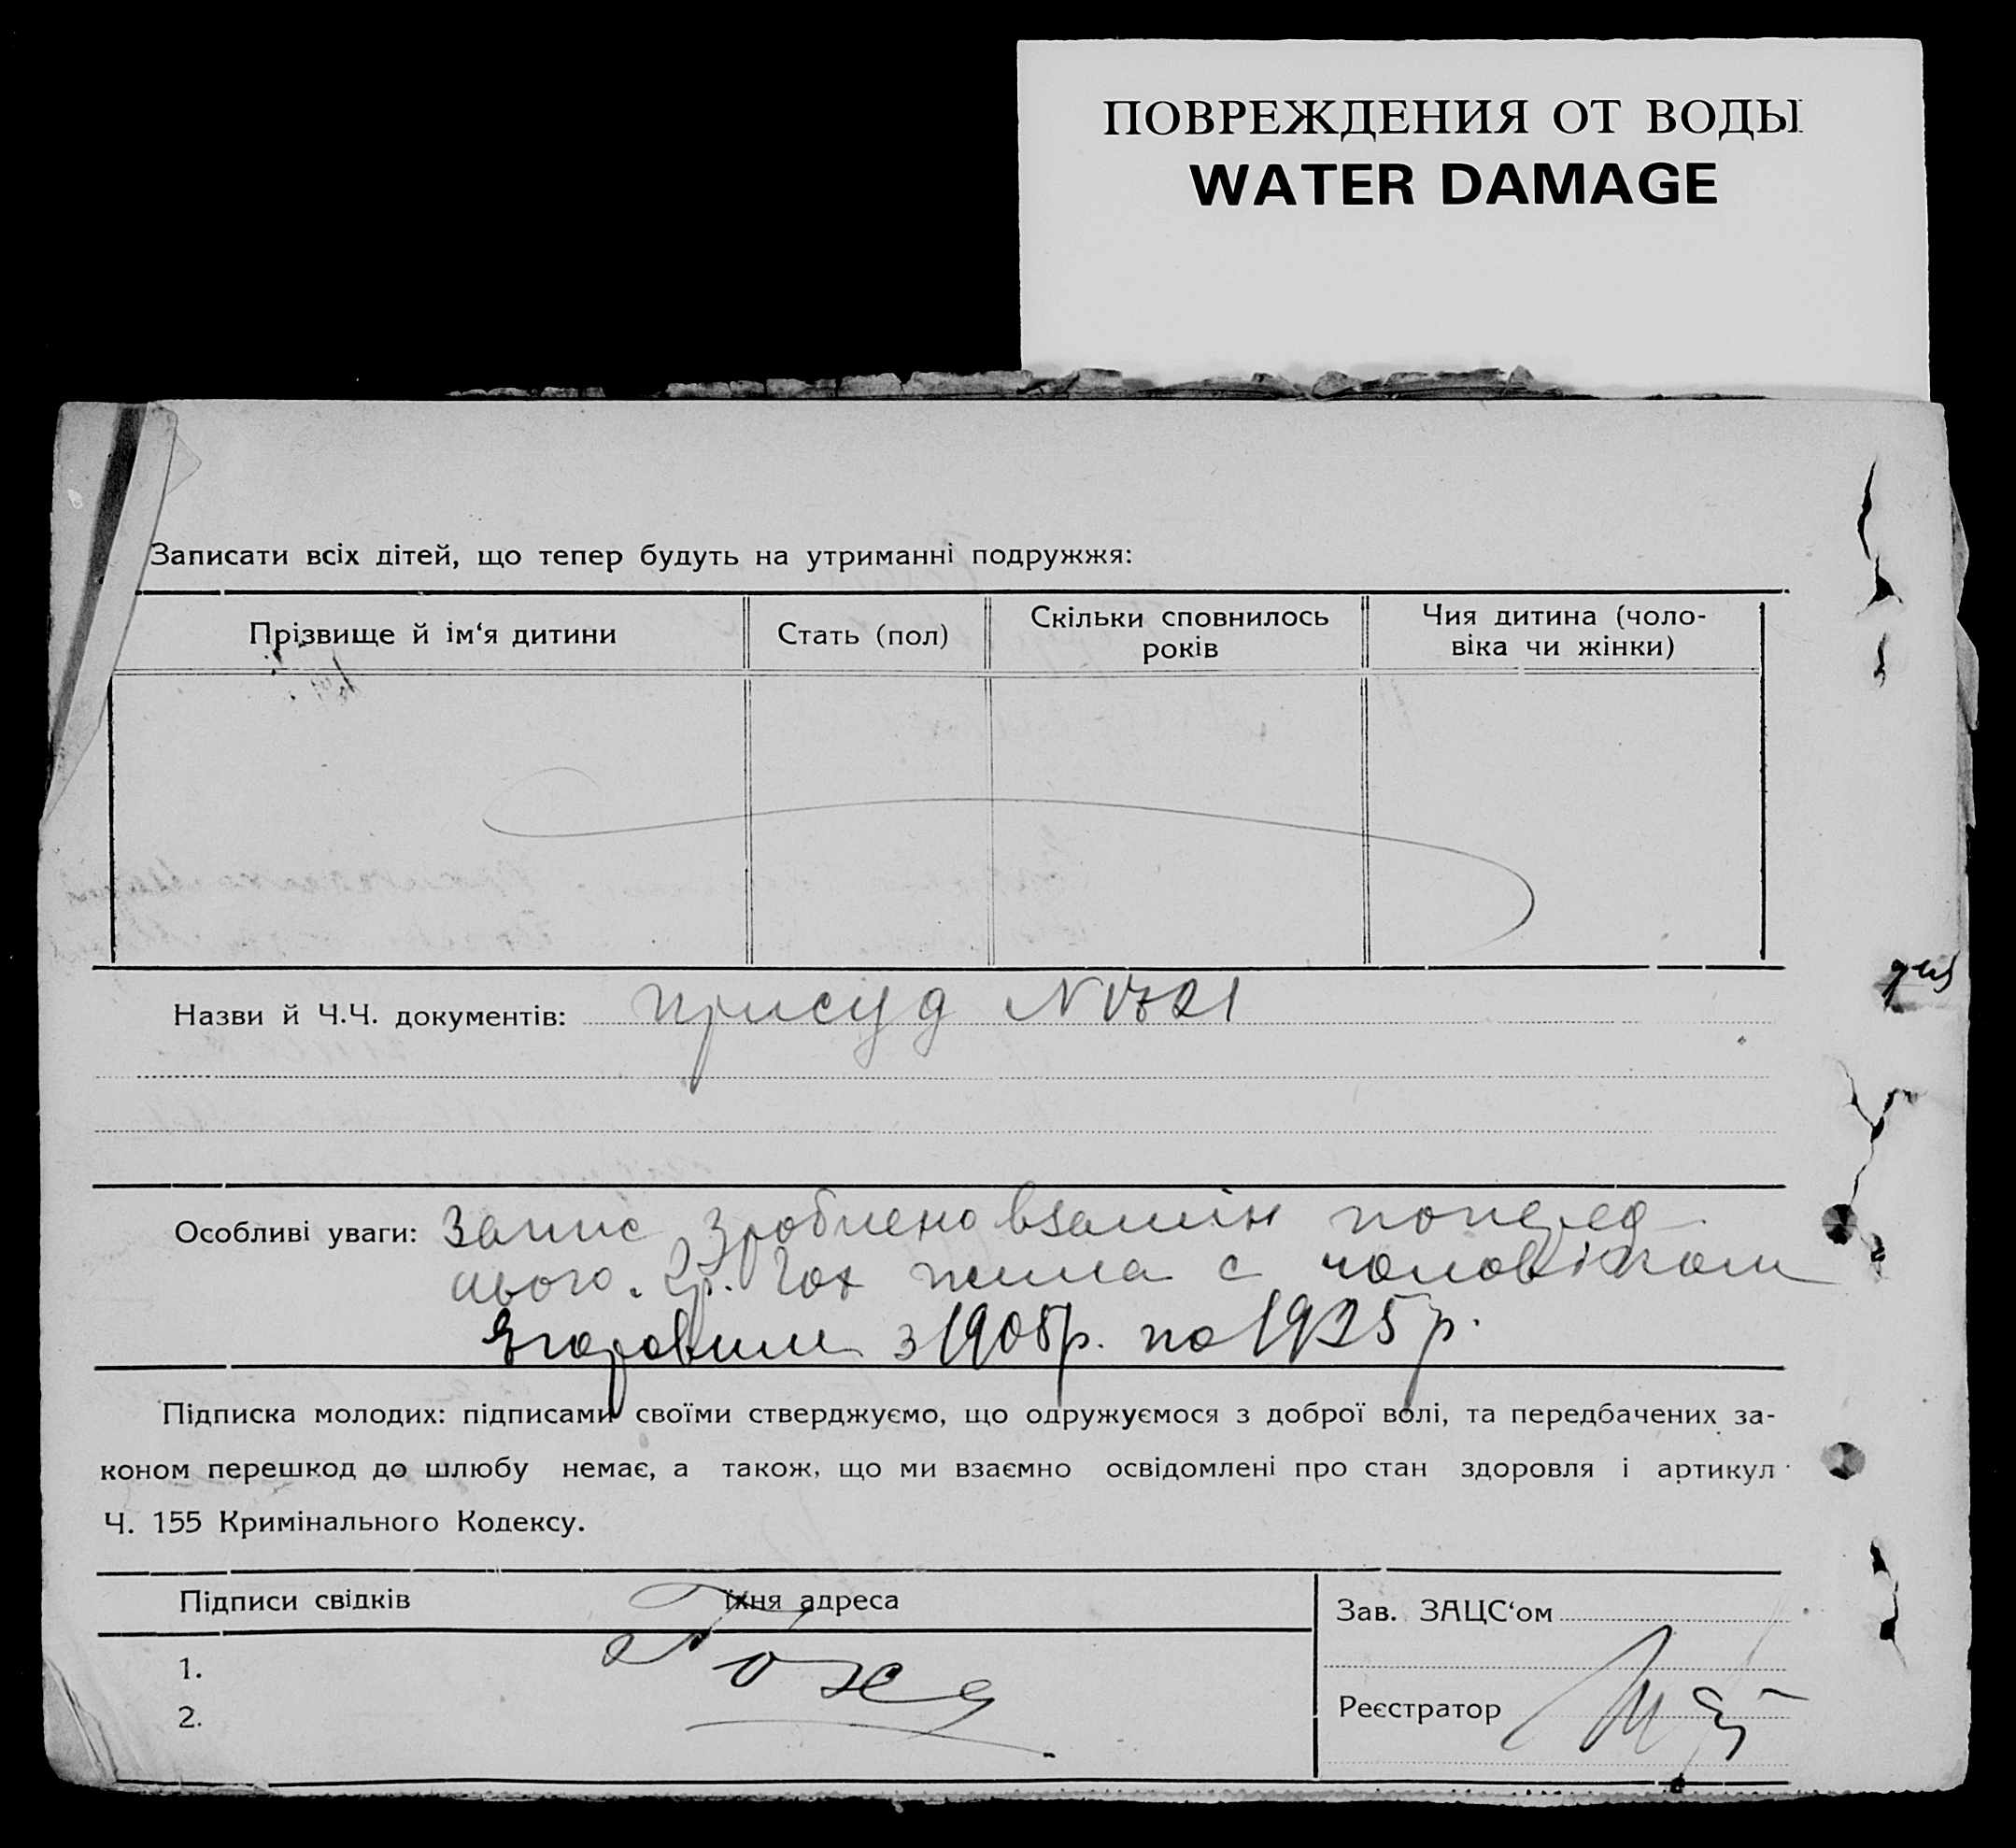 ПОВРЕЖДЕНИЯ ОТ ВОДЫ
WATER DAMAGE
Записати всіх дітей, що тепер будуть на утриманні подружжя:
Прізвище й ім‘я дитини
Стать (пол)
Скільки сповнилось
років
Чия дитина (чоло-
віка чи жінки)
Назви й Ч.Ч. документів: присуд N 1721
Особливі уваги: Запис зроблено взамін поперед
нього. Гр. Гох жила с чоловіком
Егоровим з 1905р. по 1925р.
Підписка молодих: підписами своїми стверджуємо, що одружуємося з доброї волі, та передбачених за-
коном перешкод до шлюбу немає, а також, що ми взаємно освідомлені про стан здоровля і артикул
Ч. 155 Кримінального Кодексу.
Підписи свідків
їхня адреса
Зав. ЗАЦС‘ом
1.
2.
Реєстратор